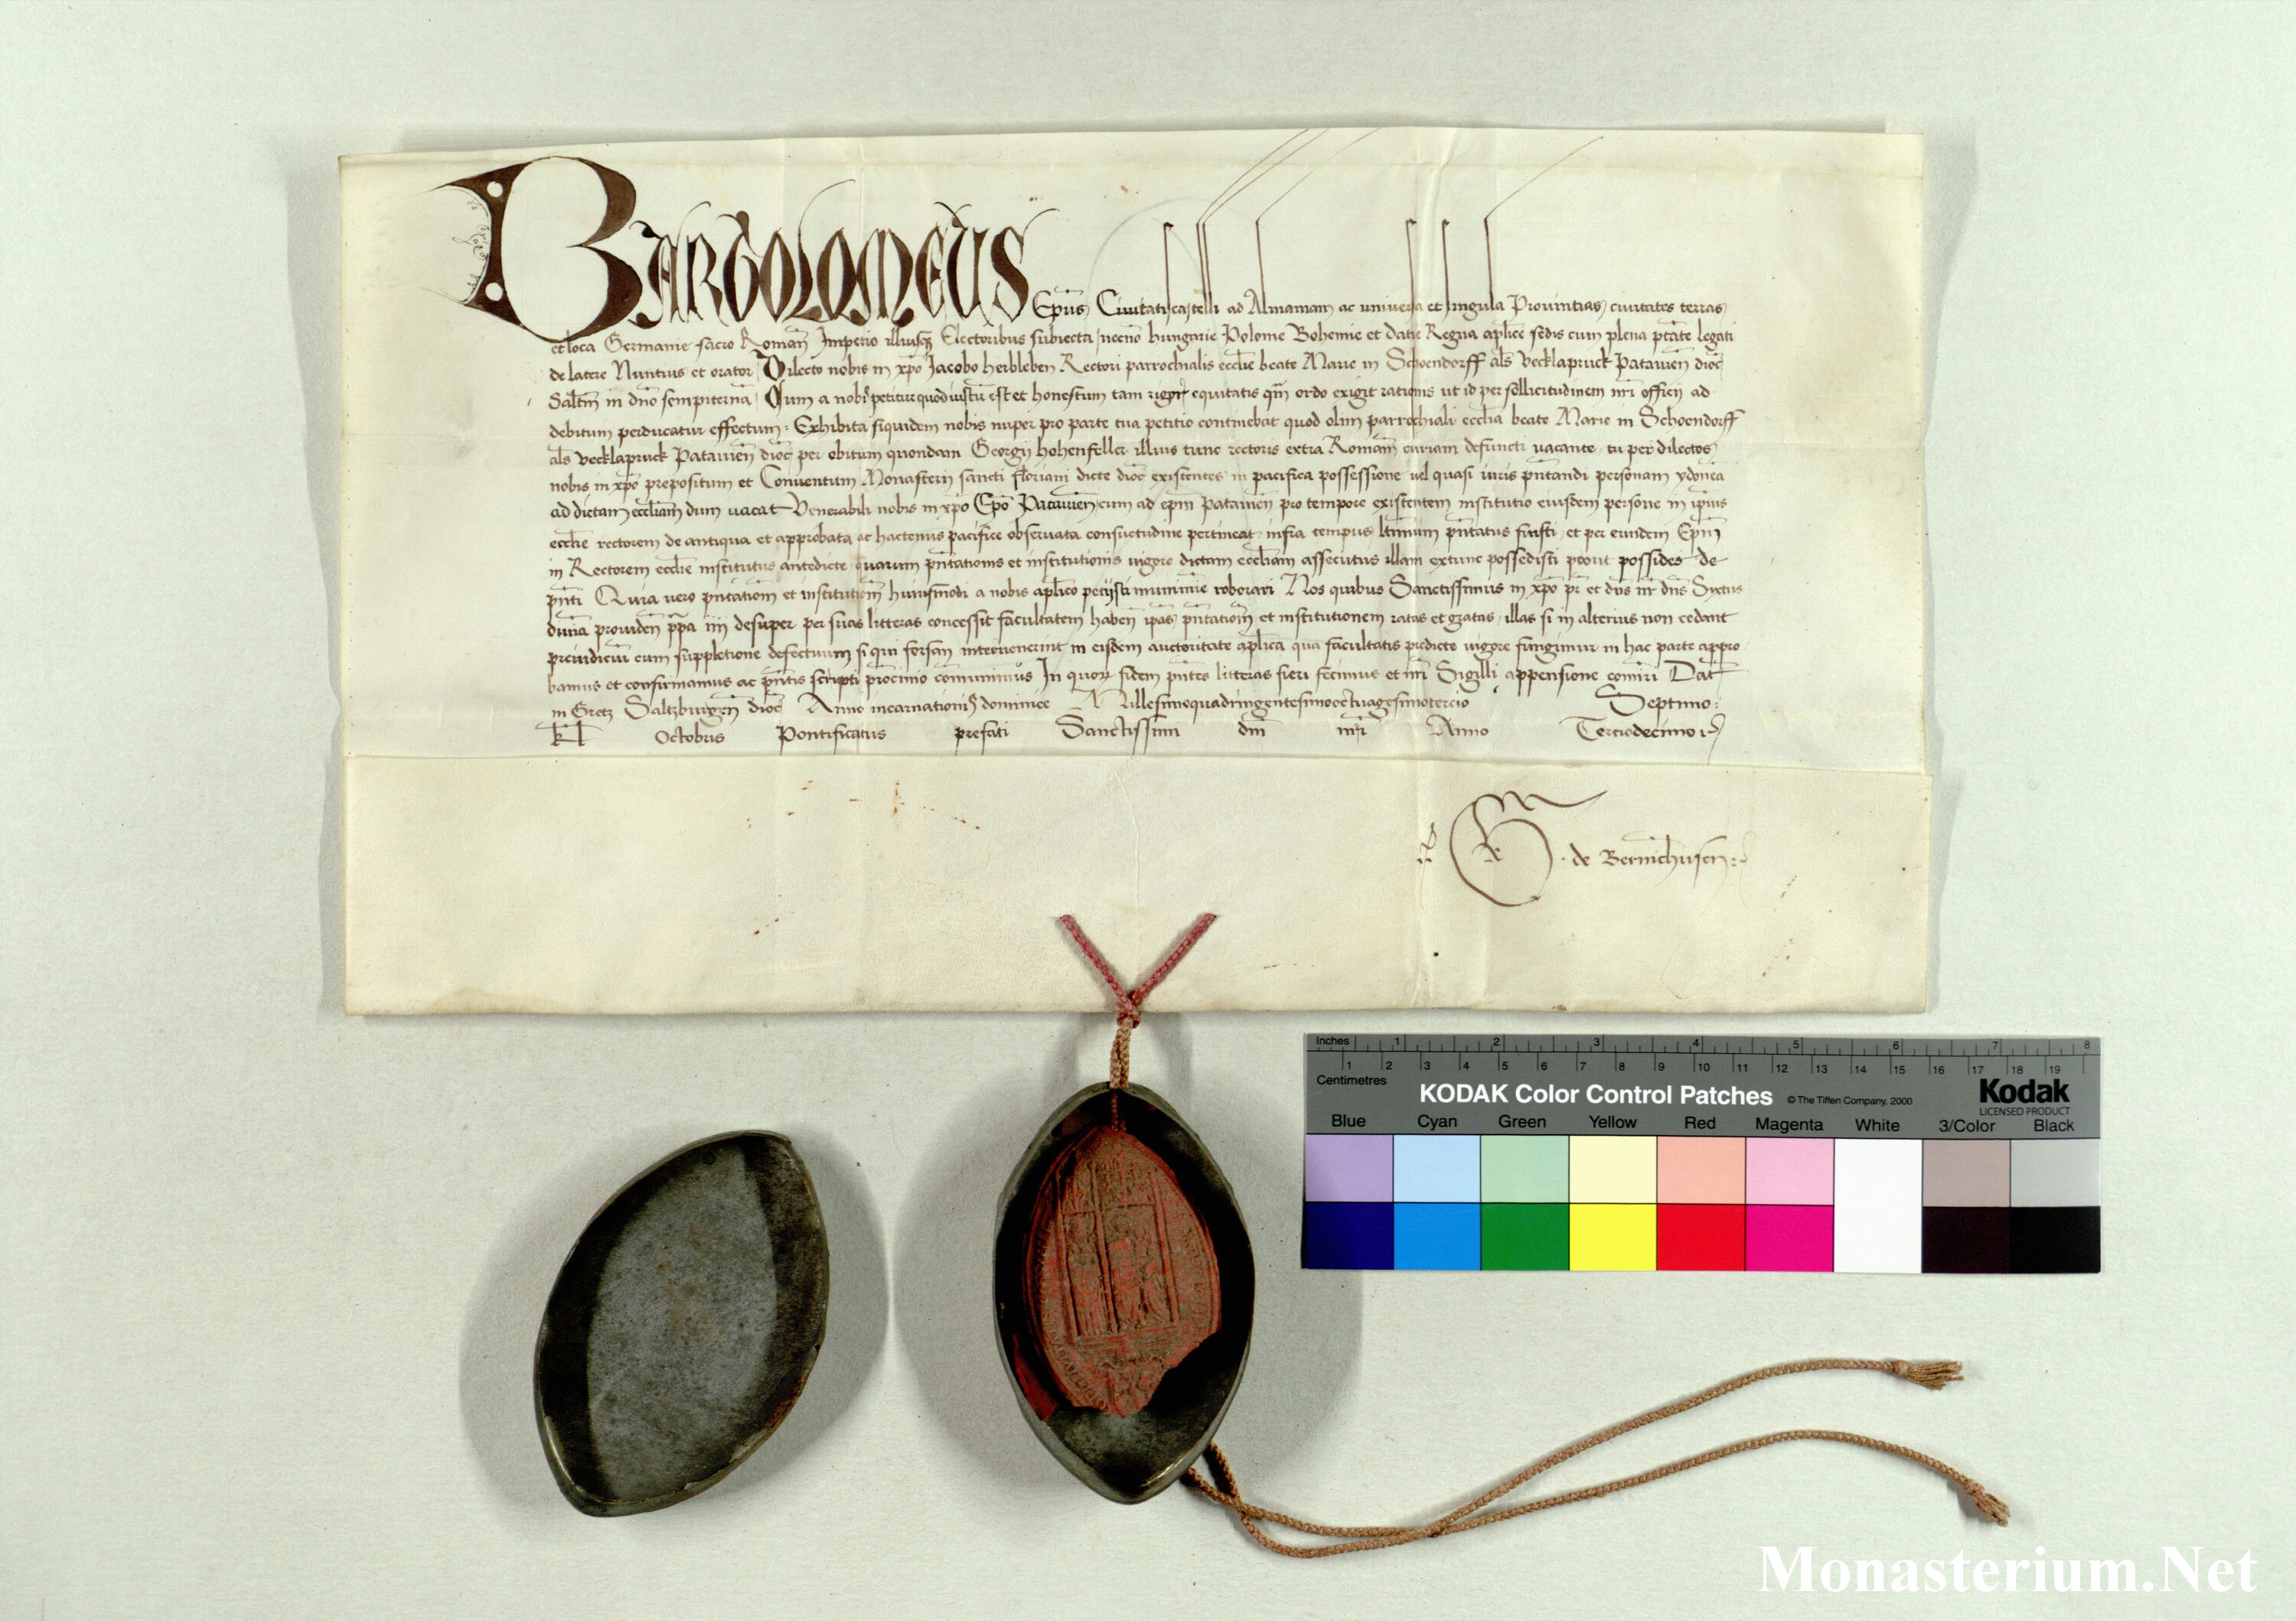 BARTOLOMEUS Ep̄us Ciuitatiscastelli ad Almaniam ac uniuersa et singula Prouintias ciuitates terras
et loca Germanie sacro Romañ Imperio illiusqȝ Electoribus subiecta necnō hungarie Polonie Bohemie et Datie Regna ap̄lice sedis cum plena p̄tate legati
de latere Nuntius et orator Dilecto nobis in xp̄o Jacobo herbleben Rectori parrochialis eccl̄ie beate Marie in Schoendorff al̄s Vecklapruck Patauien̄ dioc̄
Sal̄tm in dn̄o sempiternā Cum a nobis petitur quod iustū est et honestum tam uigor equitatis qm̄ ordo exigit rationis ut id per sollicitudinem nr̄i officii ad
debitum perducatur effectum Exhibita siquidem nobis nuper pro parte tua petitio continebat quod olim parrochiali eccl̄ia beate Marie in Schoendorff
al̄s Vecklapruck Patauien̄ dioc̄ per obitum quondam Georgii hohenfeller illius tunc rectoris extra Romanā curiam defuncti uacante tu per dilectos
nobis in xp̄o prepositum et Conuentum Monasterii sancti floriani dicte dioc̄ existentes in pacifica possessione uel quasi iuris pn̄tandi personam ydoneā
ad dictam eccl̄iam dum uacat Venerabili nobis in xp̄o Ep̄o Patauien̄ cum ad ep̄m Patauien̄ pro tempore existentem institutio eiusdem persone in ip̄ius
eccl̄ie rectorem de antiqua et approbata ac hactenus pacifice obseruata consuetudine pertineat infra tempus l̄timum pn̄tatus fuisti et per eundem Ep̄m
in Rectorem eccl̄ie institutus antedicte quarum pn̄tationis et institutionis uigore dictam eccl̄iam assecutus illam extunc possedisti prout possides de
pn̄ti Quia uero pn̄tatiom̄ et institutiom̄ huiusmodi a nobis ap̄lico petijsti munimine roborari Nos quibus Sanctissimus in xp̄o pr̄ et dn̄s nr̄ dn̄s Sixtus
diuina prouiden̄ p̄pa iiij desuper per suas litteras concessit facultatem haben̄ ip̄as pn̄tatiom̄ et institutionem ratas et gratas illas si in alterius non cedant
preiudiciū cum suppletione defectuum si qui forsan interuenerint in eisdem auctoritate ap̄lica qua facultatis predicte uigore fungimur in hac parte appro
bamus et confirmamus ac pn̄tis scripti procinio communimus In quorum fidem pn̄tes litteras fieri fecimus et nr̄i Sigilli appensione com̄iri Dat̄
in Gretz Saltzburgen̄ dioc̄ Anno incarnationis dominice Millesimoquadringentesimooctuagesimotercio Septimo
kl̄ Octobris Pontificatus prefati Sanctissimi dn̄i nr̄i Anno Terciodecimo
de Bernichusen
Inches 1 2 3 4 5 6 7 8
1 2 3 4 5 6 7 8 9 10 11 12 13 14 15 16 17 18 19
Centimetres
KODAK Color Control Patches © The Tiffen Company, 2000
Kodak
LICENSED PRODUCT
Blue Cyan Green Yellow Red Magenta White 3/Color Black
Monasterium.Net